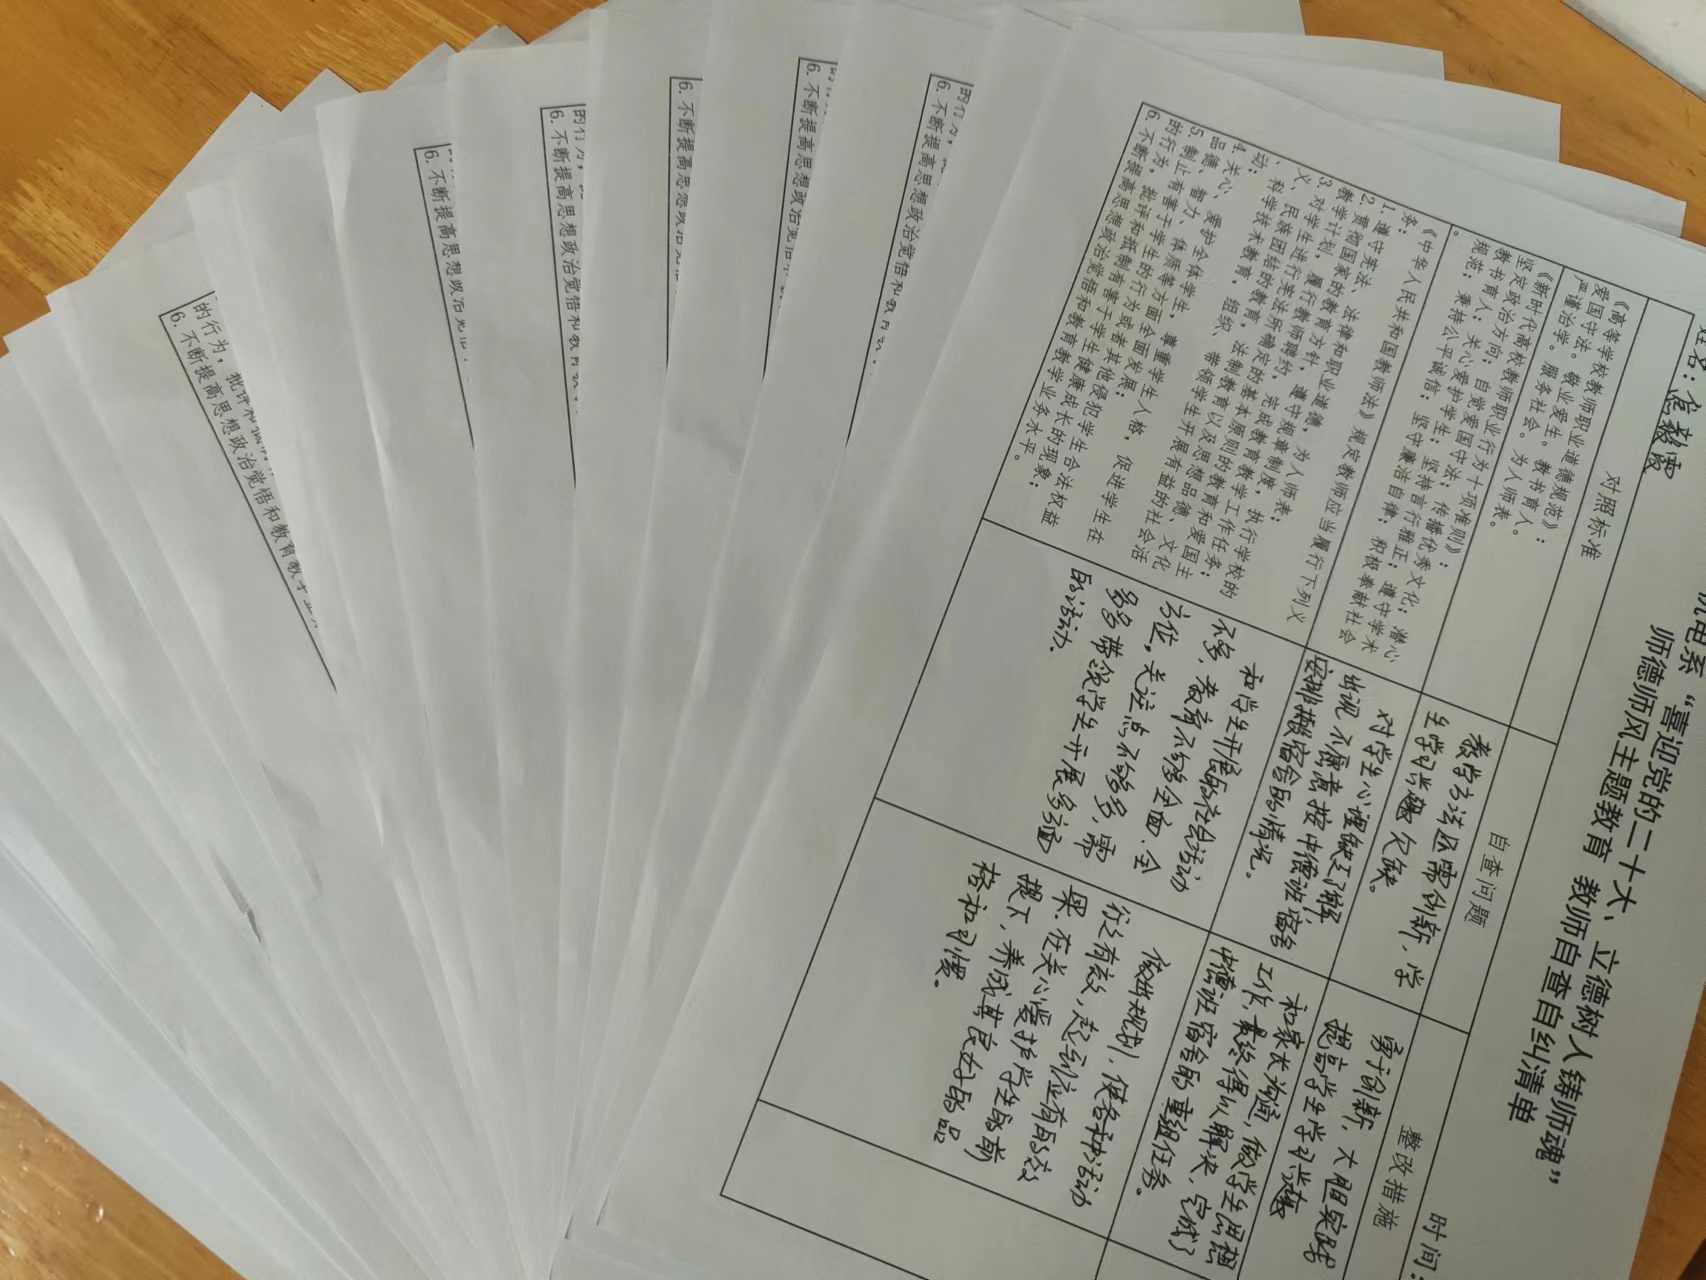 机电系“喜迎党的二十大、立德树人铸师魂”
师德师风主题教育 教师自查自纠清单
姓名：
时间：
对照标准
自查问题
整改措施
《高等学校教师职业道德规范》：
爱国守法。敬业爱生。教书育人。
严谨治学。服务社会。为人师表。
教学方法还需创新，学
生学习兴趣欠缺。
勇于创新，大胆实践
提高学生学习兴趣
《新时代高校教师职业行为十项准则》：
坚定政治方向；自觉爱国守法；传播优秀文化；潜心
教书育人；关心爱护学生；坚持言行雅正；遵守学术
规范；秉持公平诚信；坚守廉洁自律；积极奉献社会
。
对学生心理缺乏了解，
出现不愿意按中德班宿舍
安排搬宿舍的情况。
和家长沟通，做学生思想
工作，最终得以解决，完成了
中德班宿舍的重组任务。
《中华人民共和国教师法》规定教师应当履行下列义
务：
1. 遵守宪法、法律和职业道德，为人师表；
2. 贯彻国家的教育方针，遵守规章制度，执行学校的
教学计划，履行教师聘约，完成教育教学工作任务；
3. 对学生进行宪法所确定的基本原则的教育和爱国主
义、民族团结的教育，法制教育以及思想品德、文化
、科学技术教育，组织、带领学生开展有益的社会活
动；
4. 关心、爱护全体学生，尊重学生人格，促进学生在
品德、智力、体质等方面全面发展；
5. 制止有害于学生的行为或者其他侵犯学生合法权益
的行为，批评和抵制有害于学生健康成长的现象；
6. 不断提高思想政治觉悟和教育教学业务水平。
和学生开展的社会活动
不多，教育不够全面，全
方位，关注点不够多，需
多多带领学生开展多方面
的活动。
做出规划，使各种活动
行之有效，起到应有的效
果。在关心爱护学生的前
提下，养成其良好的品
格和习惯。
6. 不断提高思想政治觉悟和教育
6. 不断提高思想政治觉悟
6. 不断提高思想政治
6. 不断提高思想政治觉悟和教育
6. 不断提高思想政治
的行为，批评和
6. 不断提高思想政治觉悟和教育教学